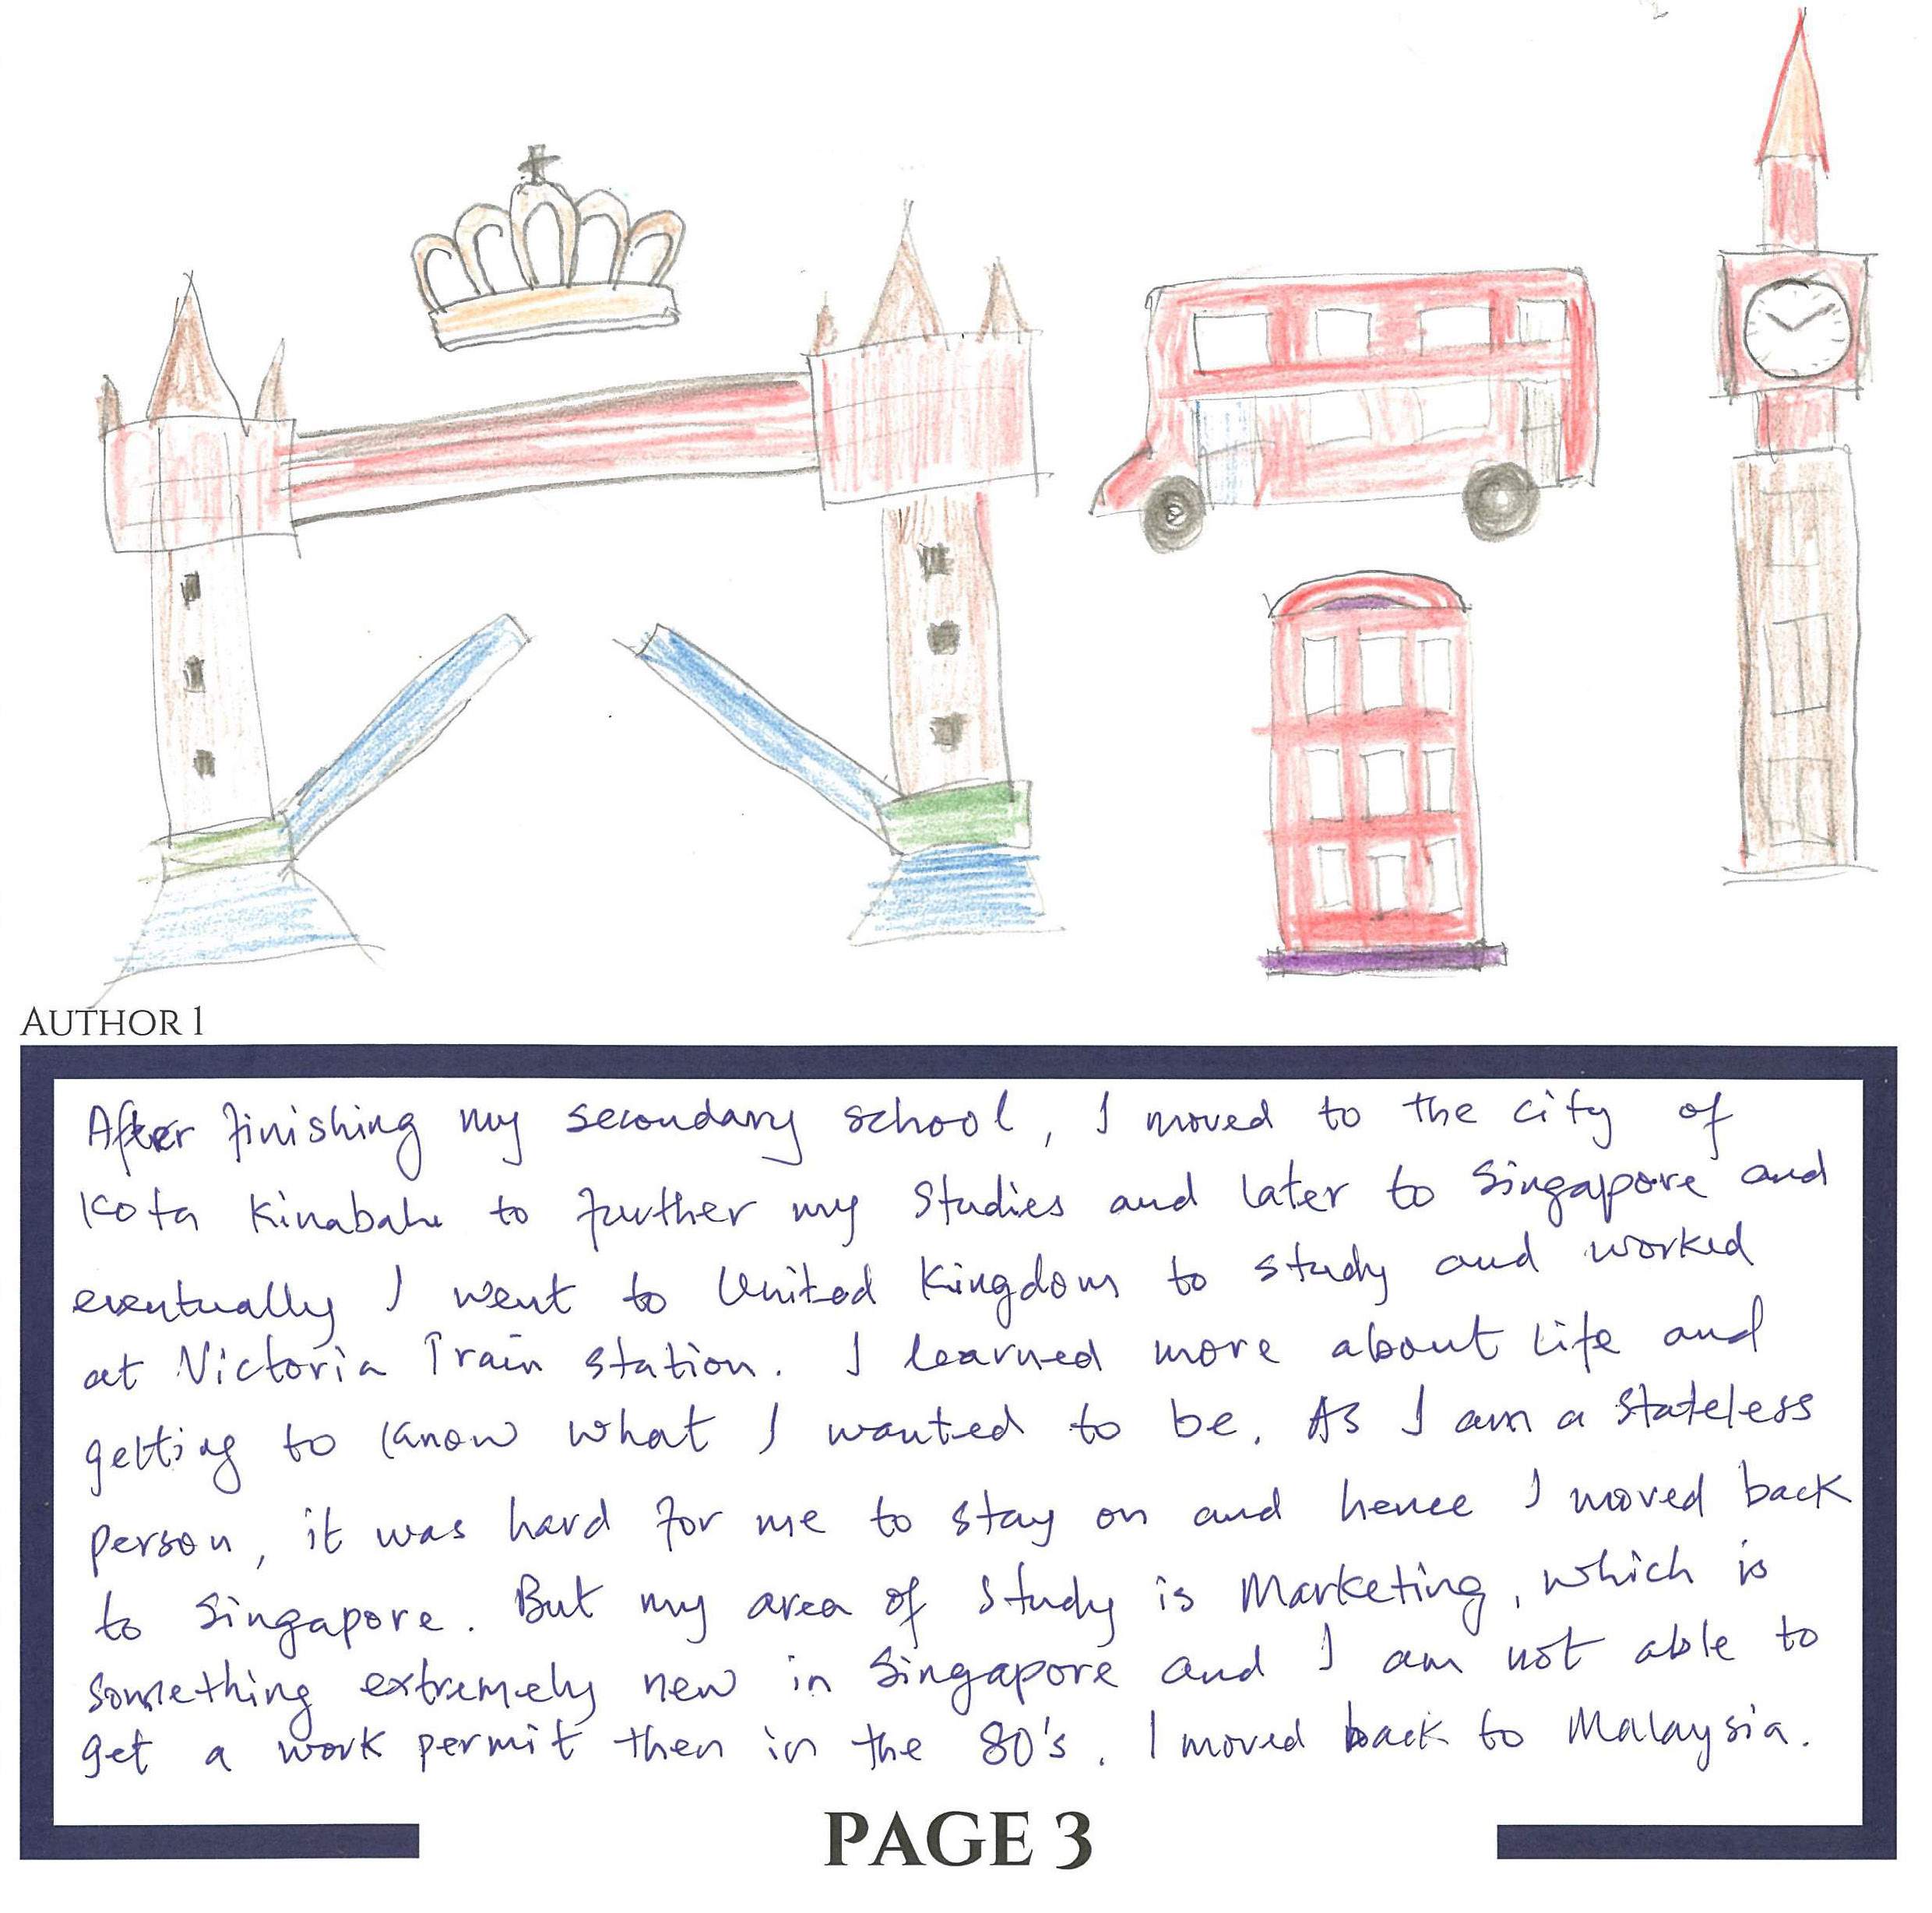 AUTHOR 1
After finishing my secondary school, I moved to the city of
Kota Kinabalu to further my studies and later to Singapore and
eventually I went to United Kingdom to study and worked
at Victoria Train station. I learned more about Life and
getting to know what I wanted to be. As I am a stateless
person, it was hard for me to stay on and hence I moved back
to Singapore. But my area of study is Marketing, which is
something extremely new in Singapore and I am not able to
get a work permit then in the 80's. I moved back to Malaysia.
PAGE 3